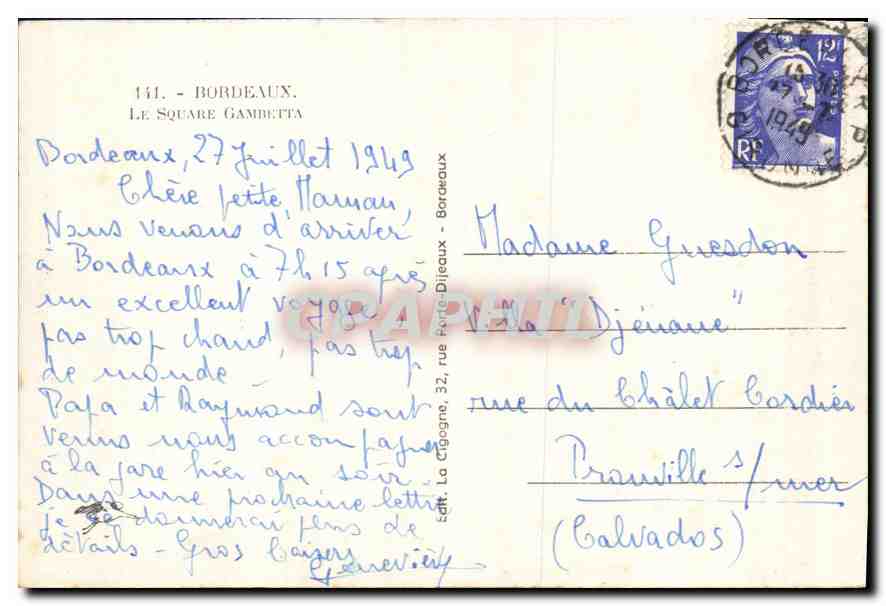 141. - BORDEAUX.
LE SQUARE GAMBETTA
Bordeaux, 27 Juillet 1949
Chère petite Maman,
Nous venons d'arriver
à Bordeaux à 7h15 après
un excellent voyage,
pas trop chaud, pas trop
de monde.
Papa et Raymond sont
venus nous accompagner
à la gare hier au soir.
Dans une prochaine lettre
je te donnerai plus de
détails - Gros baisers
Geneviève
Edit. La Cigogne, 32, rue Porte-Dijeaux - Bordeaux
12F
RF
BORDEAUX
1949
Madame Guesdon
Villa "Djénane"
rue du Châlet Cordier
Trouville s/mer
(Calvados)
CPAPHIL